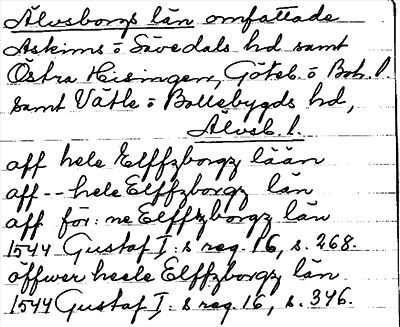 Älvsborgs län omfattade
Askims o Sävedals hd samt
Östra Hisingen, Göteb. o Boh. l.
samt Vätle o Bollebygds hd,
Älvsb. l.
aff hele Elffzborgz lään
aff -- hele Elffzborgz län
aff för: ne Elffzborgz län
1544 Gustaf I: s reg. 16, s. 268.
öffwer heele Elffzborgz län.
1544 Gustaf I: s reg. 16, s. 346.